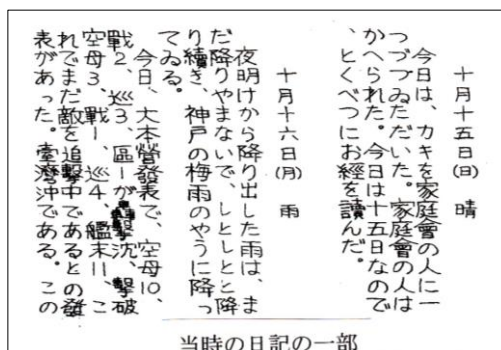 十月十五日(日) 晴
今日は、カキを家庭會の人に一
つづゝゐただいた。家庭會の人は
かへられた。今日は十五日なので
、とくべつにお經を讀んだ。
十月十六日(月) 雨
夜明けから降り出した雨は、ま
だ降りやまないで、しとしとと降
り続き、神戸の梅雨のやうに降っ
てゐる。
今日、大本營發表で、空母10、
戰2、巡3、區1が撃沈、撃破
空母3、戰1、巡4、艦末11、こ
れでまだ敵を追撃中であるとの發
表があった。臺灣沖である。この
当時の日記の一部